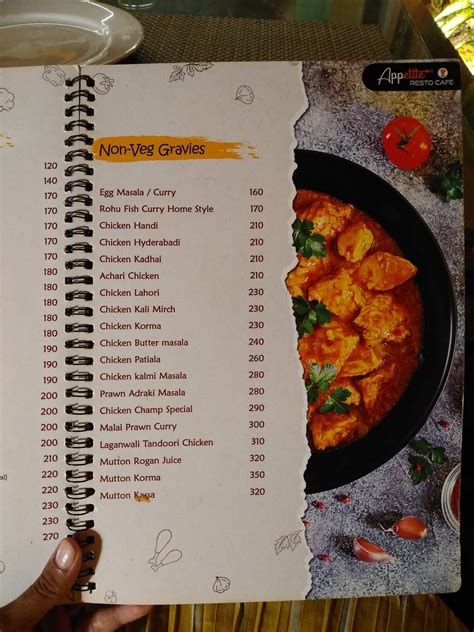 Appetite
RESTO CAFE
Non-Veg Gravies
Egg Masala / Curry 160
Rohu Fish Curry Home Style 170
Chicken Handi 210
Chicken Hyderabadi 210
Chicken Kadhai 210
Achari Chicken 210
Chicken Lahori 230
Chicken Kali Mirch 230
Chicken Korma 230
Chicken Butter masala 240
Chicken Patiala 260
Chicken kalmi Masala 280
Prawn Adraki Masala 280
Chicken Champ Special 290
Malai Prawn Curry 300
Laganwali Tandoori Chicken 310
Mutton Rogan Juice 320
Mutton Korma 350
Mutton Kassa 320
120
140
170
170
170
170
180
180
180
180
180
180
190
190
200
200
200
200
210
220
220
230
230
270